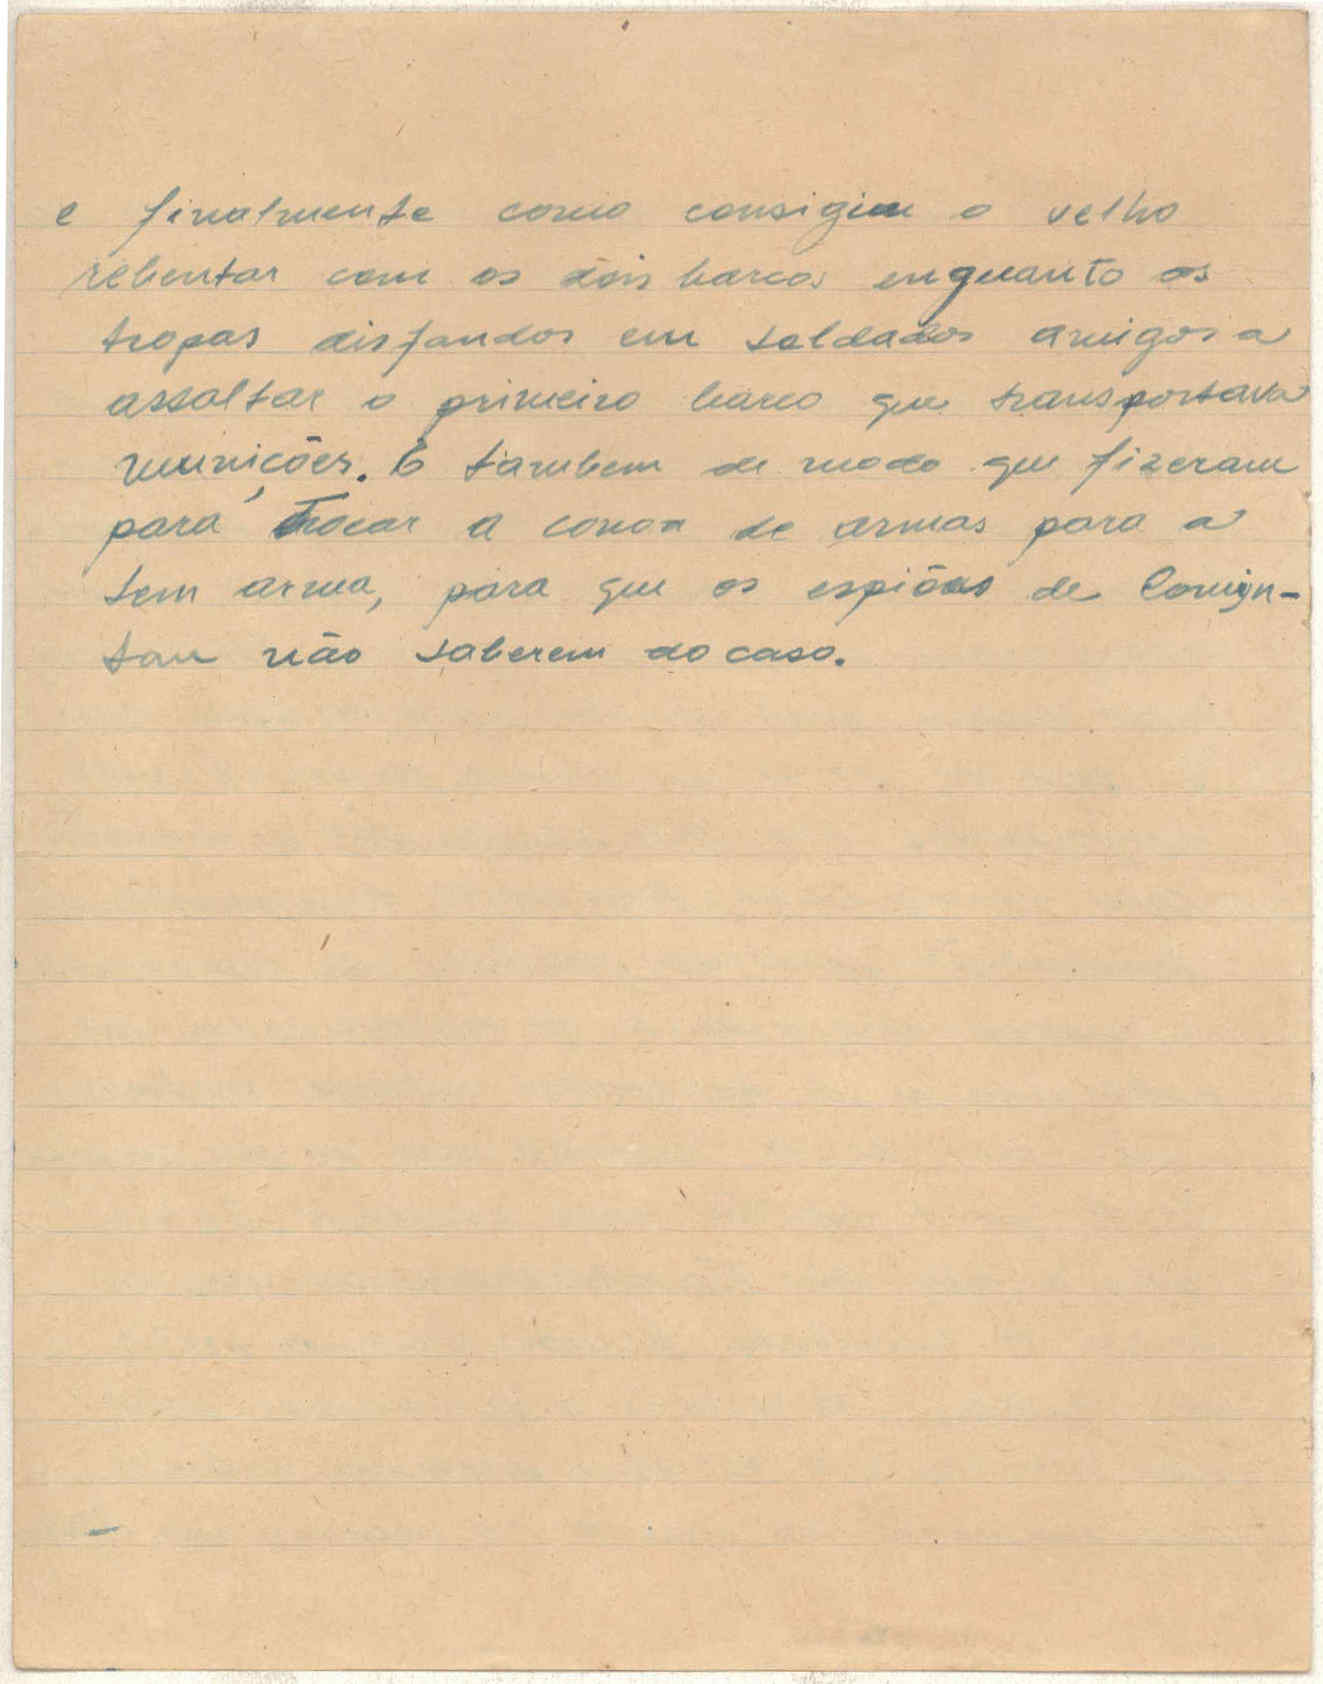 e finalmente como consigiu o velho
rebentar com os dois barcos enquanto as
tropas disfandos em soldados amigos a
assaltar o primeiro barco que transportava
munições. E tambem de modo que fizeram
para trocar a conoa de armas para a
sem arma, para que os espiões de
não saberem do caso.